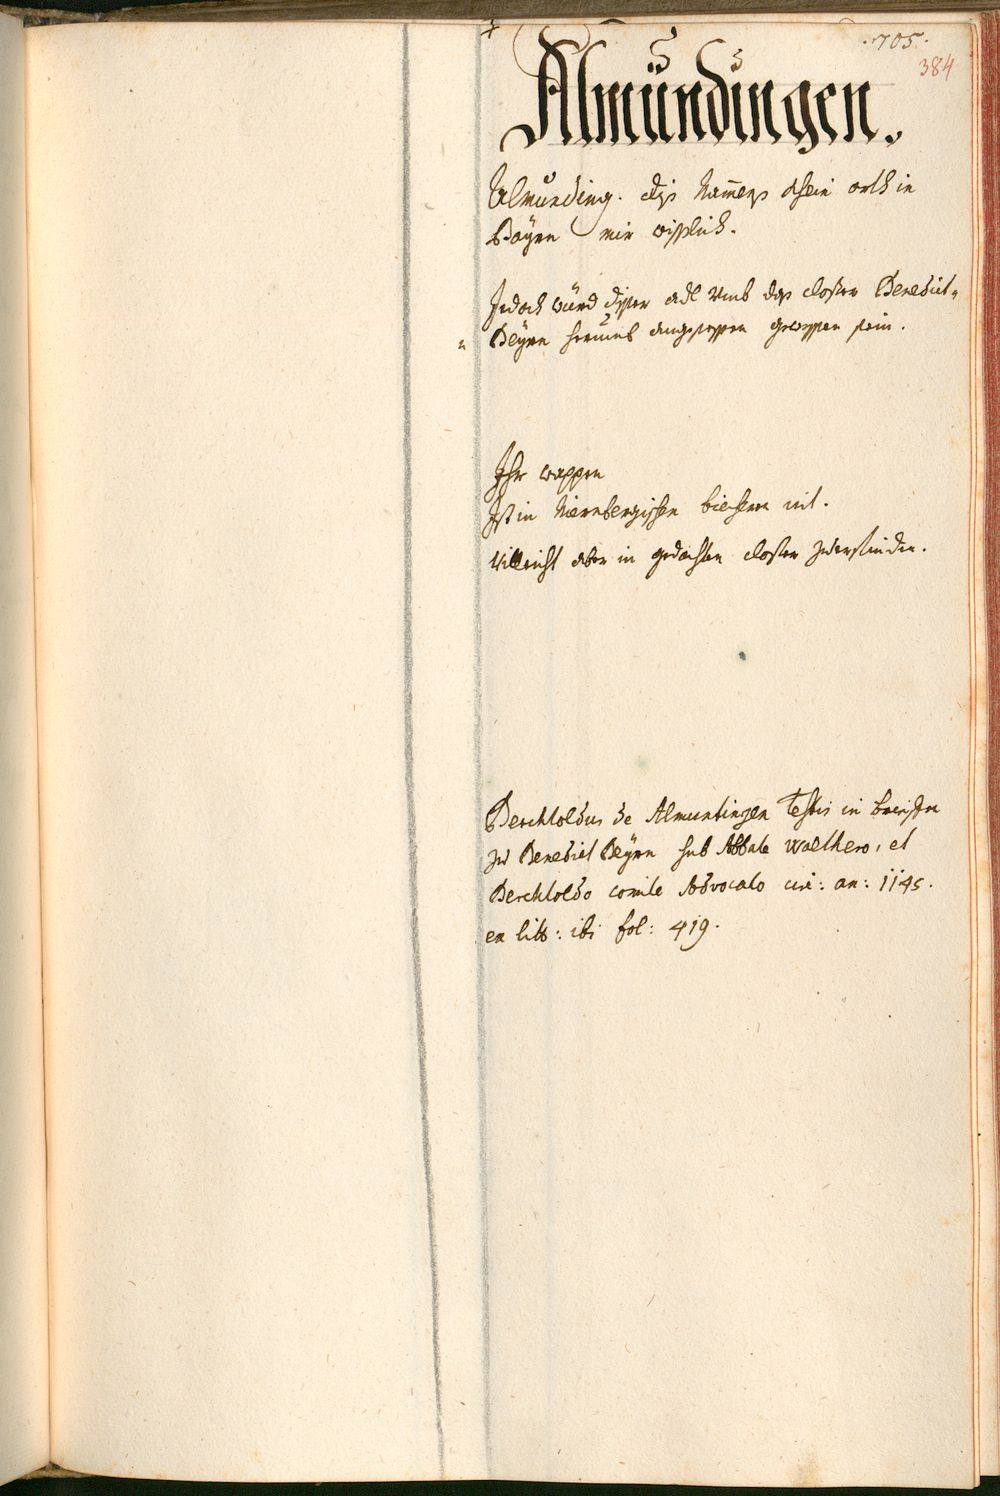 .705.
384
Almundingen.
Almunding. diß Namenß khein orth in
Bayrn mir wißlich.
Jedoch würd dißer adl umb daß closter Benedict-
Beyrn herumb angesessen gewessen sein.
Ihr wappen
Ist in Niernbergischen biechern nit.
Villeicht aber in gedachten closter zuersinden.
Berchtoldus de Almuntingen Testis in brieffen
zu Benedict Beyrn sub Abbate Walthero, et
Berchtoldo comite Advocato an: 1145.
ex litt: ibi fol: 419.